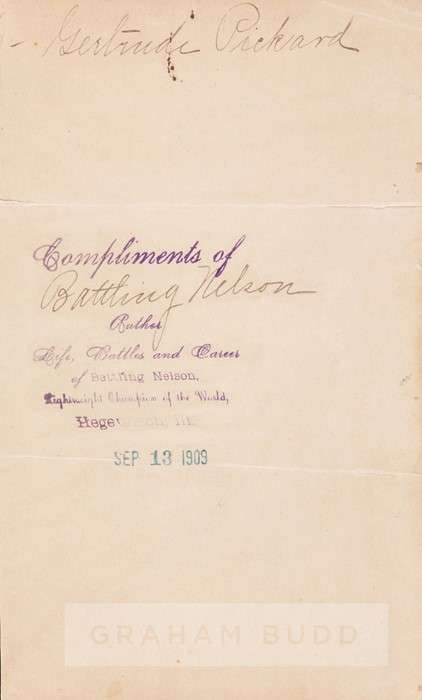 Gertrude Pickard
Compliments of
Battling Nelson
Author
Life, Battles and Career
of Battling Nelson,
Lightweight Champion of the World,
SEP 13 1909
GRAHAM BUDD